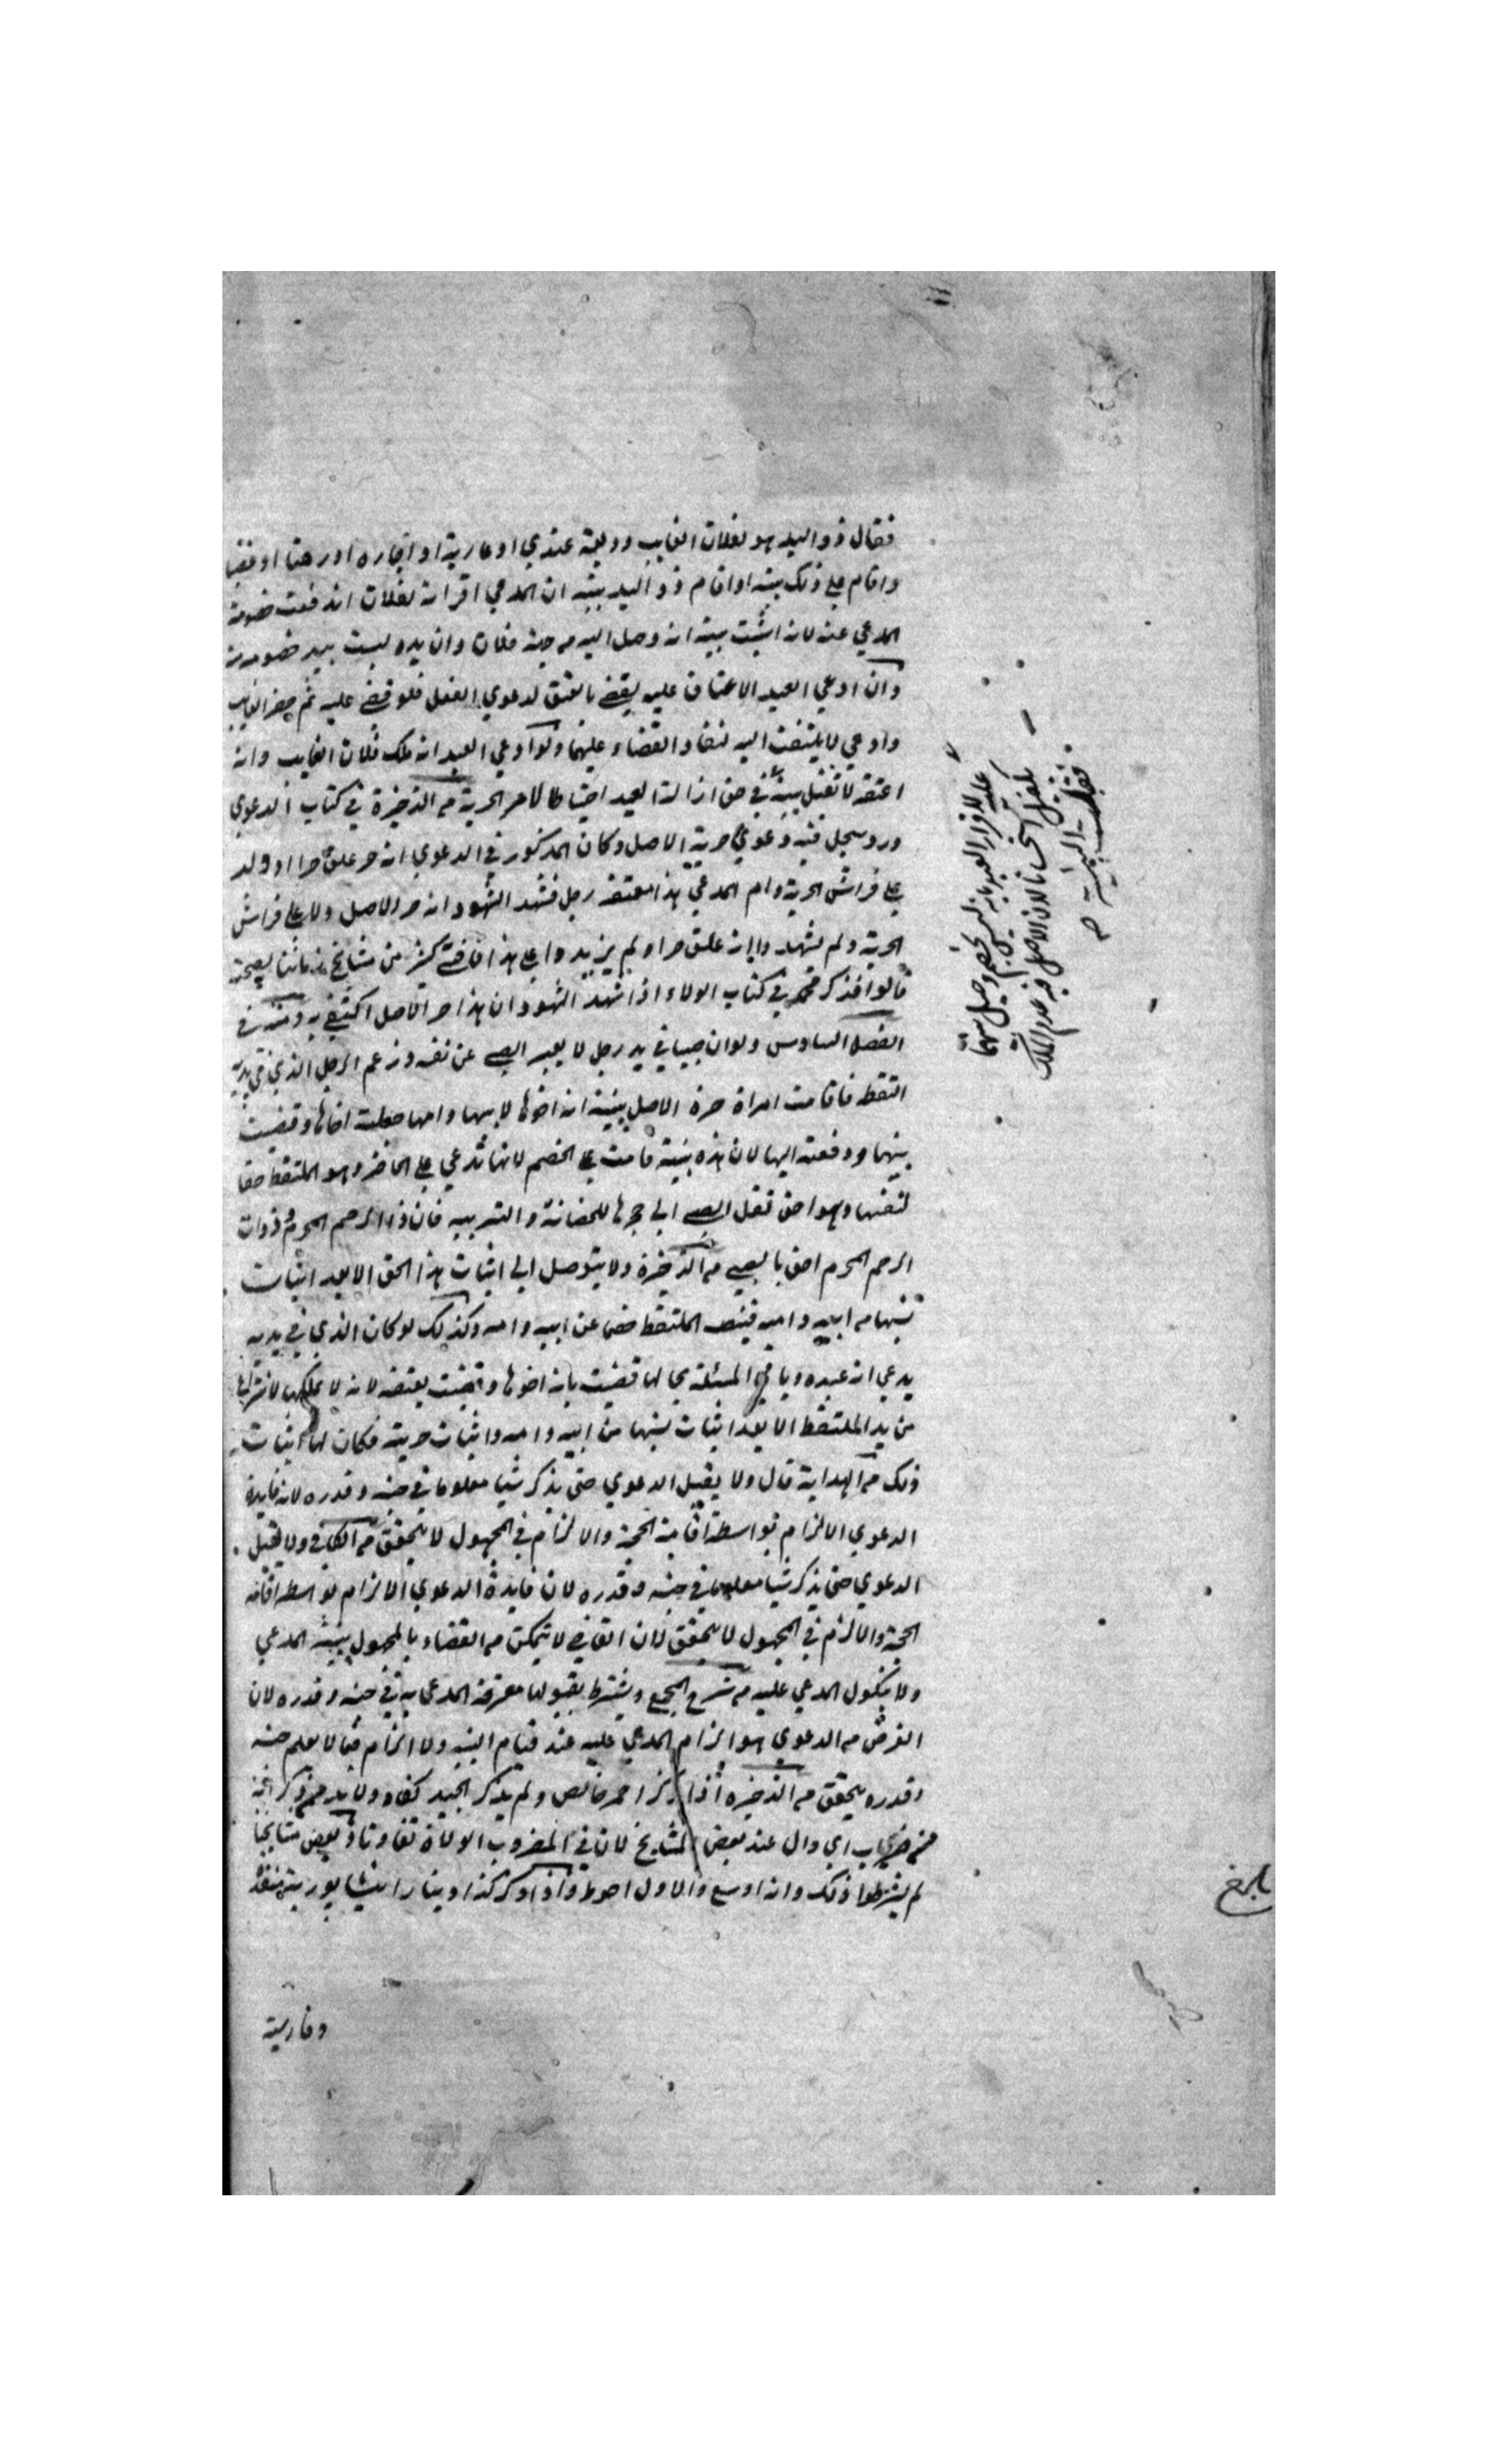 فقال ذو اليد هو لفلان الغايب وديعة عندي او عارية او اجاره او رهنا او غصبا
واقام علي ذلك بينه او اقام ذو اليد بينه ان المدعي اقر انه لفلان اندفعت خصومة
المدعي عنه لانه اثبت ببينة انه وصل اليه من جهة فلان وان يده ليست بيد خصومه
وان ادعي العبد الاعتاق عليه يقضي بالعتق لدعوي الفعل فلو قضي عليه ثم حضر الغايب
وادعي لا يلتفت اليه لنفاد القضاء عليهما ولو ادعي العبد انه ملك فلان الغايب وانه
اعتقه لا تقبل بينته في حق ازالة العبد احتياطا لامر الحرية من الذخيرة في كتاب الدعوي
ورد سجل فيه دعوي حرية الاصل وكان المذكور في الدعوي انه حر علق حرا او ولد
علي فراش الحرية وام المدعي هذا معتقه رجل فشهد الشهود انه حر الاصل ولد علي فراش
الحرية ولم يشهدوا انه علق حرا ولم يزيدوا علي هذا فافتي كثير من مشايخ زماننا بصحته
قالوا فذكر محمد في كتاب الولاء اذا شهد الشهود ان هذا حر الاصل اكتفي به ومنه في
الفصل السادس ولو ان صبيا في يد رجل لا يعبر الصبي عن نفسه وزعم الرجل الذي في يديه
التقط فاقامت امراة حرة الاصل بينة انه اخوها لابيها وامها جعلته اخاها وقضيت
بينهما ودفعته اليها لان هذه بينة قامت علي الخصم لانها تدعي علي الحاضر وهو الملتقط حقا
لنفسها وهو حق نقل الصبي الي حجرها للحضانة والتربيه فان ذا الرحم المحرم وذوات
الرحم المحرم احق بالصبي من الذخيرة ولا يتوصل الي اثبات هذا الحق الا بعد اثبات
نسبها من ابيه وامه فينصب الملتقط خصما عن ابيه وامه وكذلك لو كان الذي في يديه
يدعي انه عبده وباقي المسئلة بحالها قضيت بانه اخوها وقضيت بعتقه لانه لا يمكنها الانتزاع
من يد الملتقط الا بعد اثبات نسبها من ابيه وامه واثبات حريته فكان لها اثبات
ذلك من الهداية قال ولا يقبل الدعوي حتى يذكر شيا معلوما في جنسه وقدره لان فايدة
الدعوي الالزام بواسطة اقامة الحجة والالزام في المجهول لا يتحقق من الكافي ولا تقبل
الدعوي حتى يذكر شيا معلوما في جنسه وقدره لان فايدة الدعوي الالزام بواسطة اقامه
الحجة والالزام في المجهول لا يتحقق لان القاضي لا يتمكن من القضاء بالمجهول ببينة المدعي
ولا بنكول المدعي عليه من شرح المجمع ويشترط لقبولها معرفة المدعا به في جنسه وقدره لان
الغرض من الدعوي هو الزام المدعي عليه عند قيام البينه ولا الزام فيما لا يعلم جنسه
وقدره يتحقق من الذخيره اذا ذكر زر احمر خالص ولم يذكر الجيد كفاه ولا بد من ذكر انه
من ضرب اي وال عند بعض المشايخ لان في المضروب الولاة تفاوتا وبعض مشايخنا
لم يشترطوا ذلك وانه اوسع والاول احوط واذا ذكر كذا دينارا نيشابوريه بنقد
وفارسية
عليه للاقرار العبد بانه ليس بخصم وحيل بينهما
بكفيل استحسانا لان الاصل فيه عدم الملك
بلغ